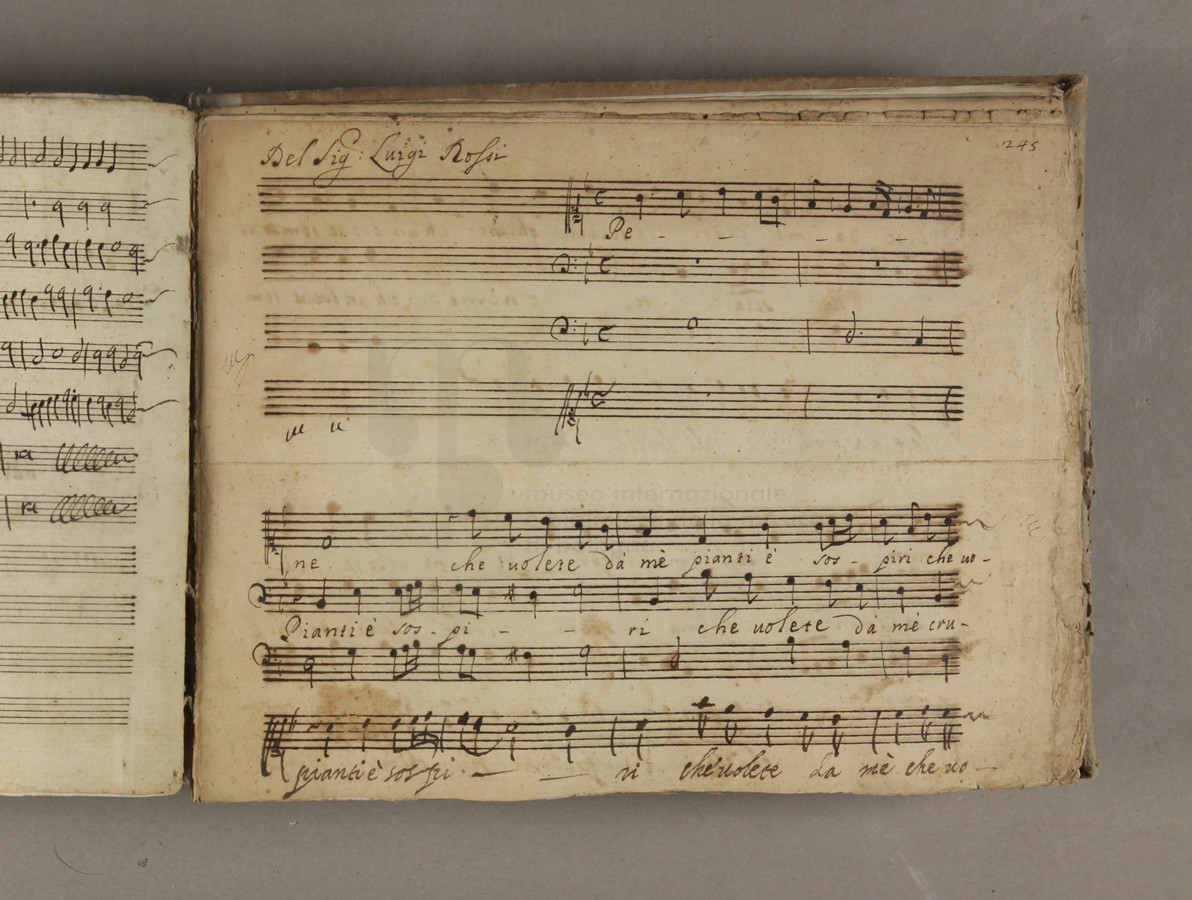 Del Sig: Luigi Rossi
245
Pe - - - -
ne che uolete dà mè pianti è sos - piri che uo -
Pianti è sos - pi - - ri che uolete dà mè cru -
pianti è sospi - - ri che uolete da mè che uo -
museo internazionale